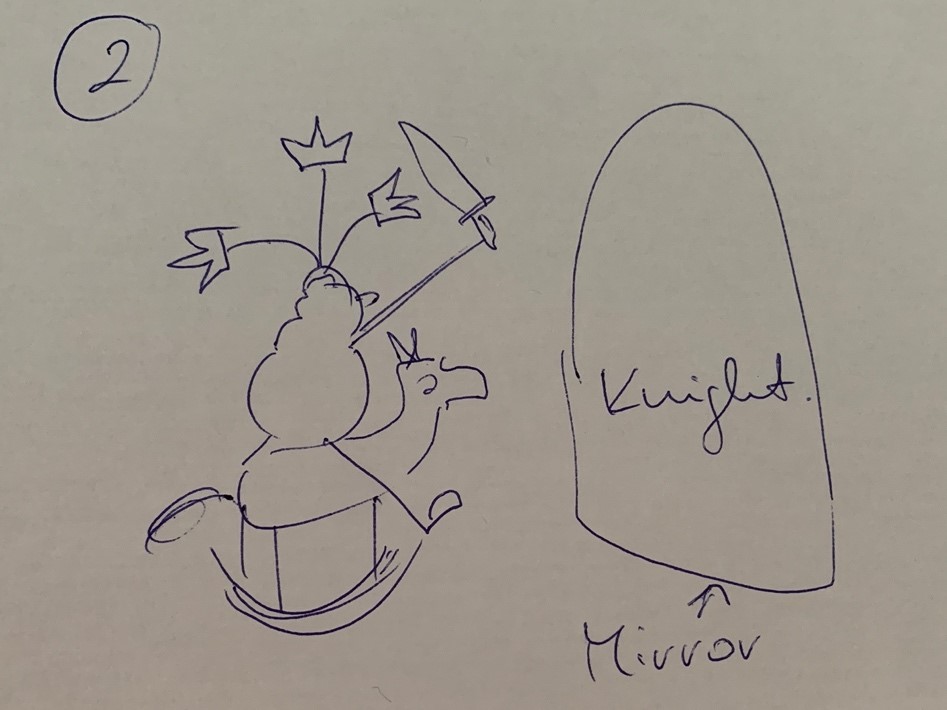 2
Knight.
Mirror